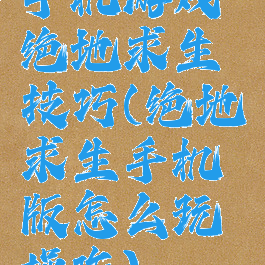 手机游戏
绝地求生
技巧(绝地
求生手机
版怎么玩